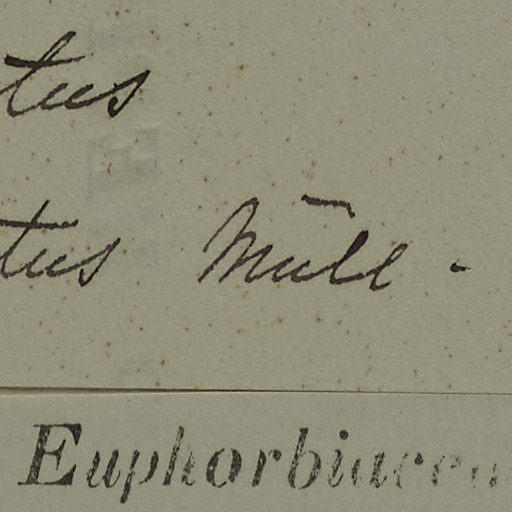 tus
tus Müll.
Euphorbiacea